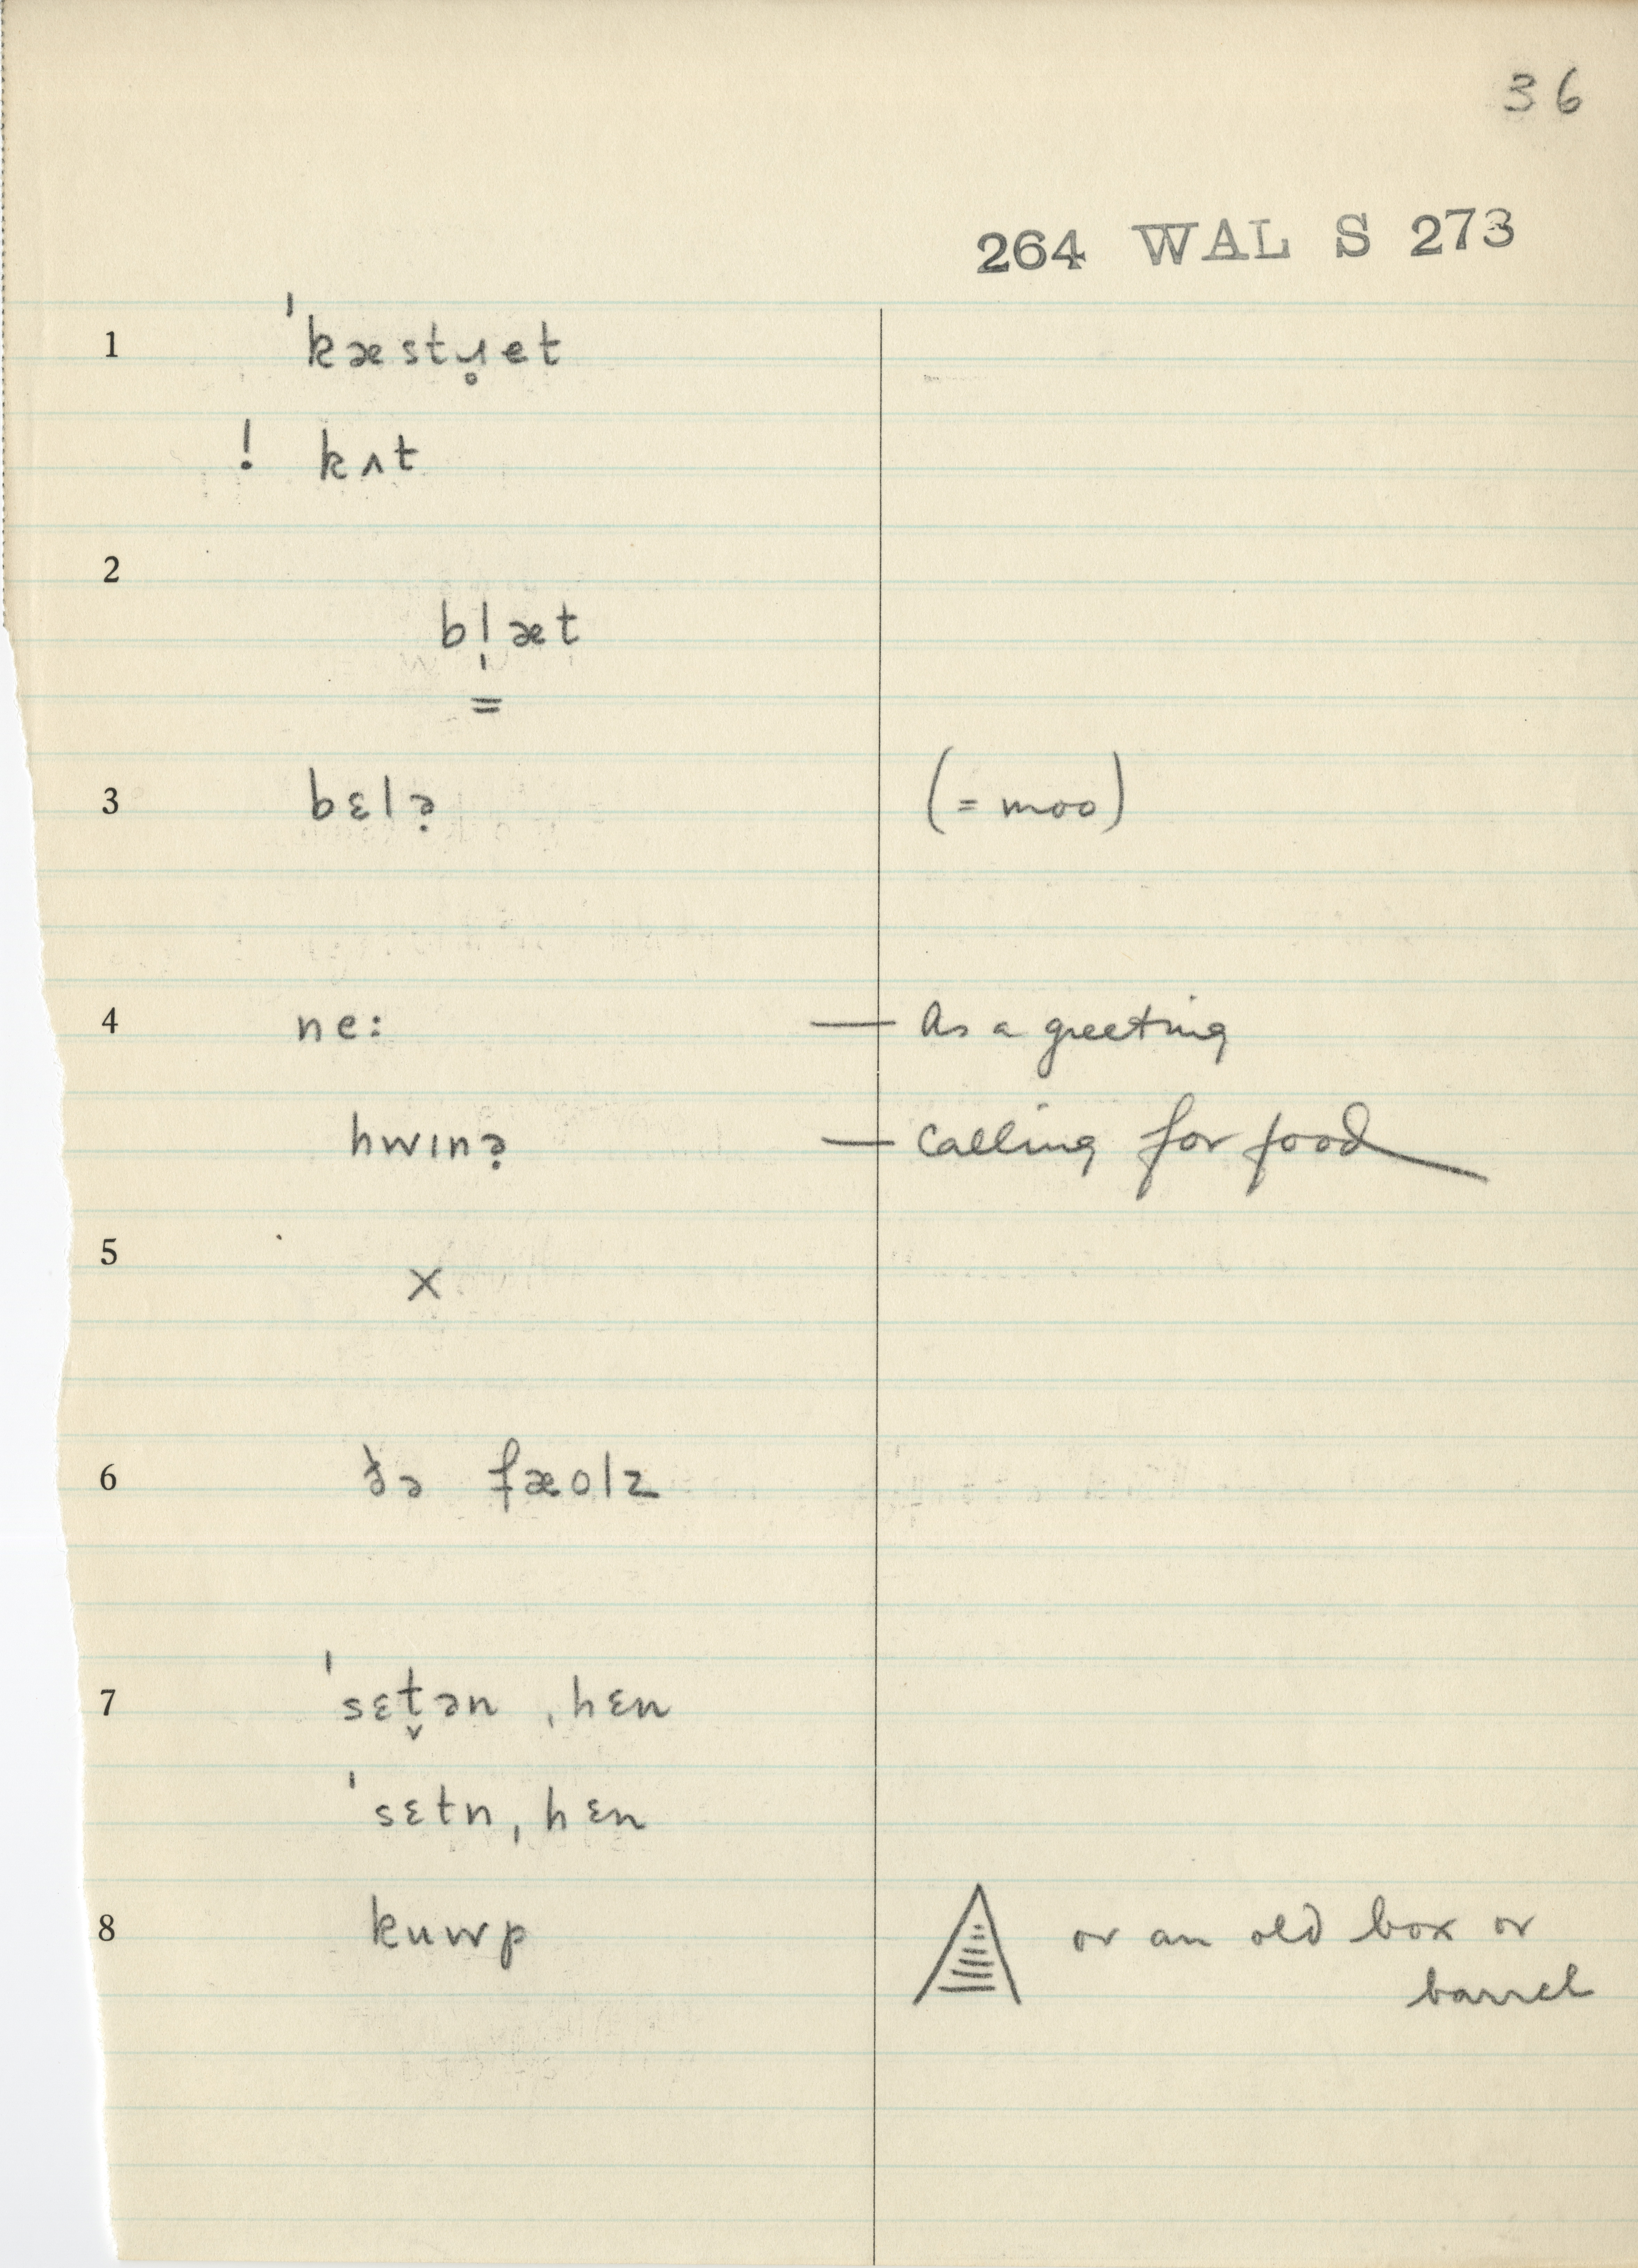 36
264 WAL S 273
1 ˈkæstɹ̥et
! kʌt
2
bl̩æt
=
3 bɛlə̣ (= moo)
4 ne: — As a greeting
hwɪnə̣ — Calling for food
5 ×
6 ðə fæolz
7 ˈsɛt̬ən ˌhɛn
ˈsɛtn ˌhɛn
8 kuwp or an old box or
barrel